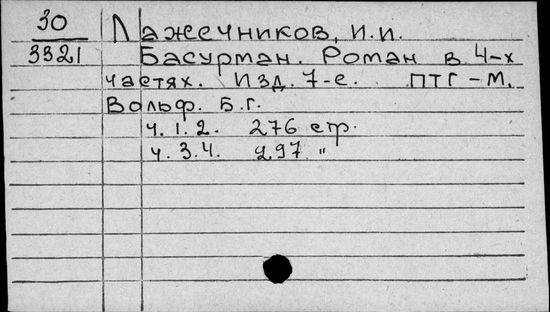 30 Лажечников, И.И.
3321 Басурман. Роман в 4-х
частях. Изд. 7-е. ПТГ-М.
Вольф. Б.г.
ч. 1. 2. 276 стр.
ч. 3. 4. 297 "